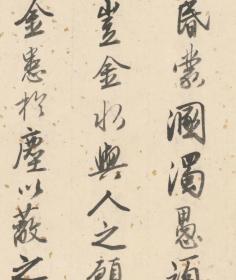 昏蒙溷濁愚
豈金水與人之願
金患於塵以蔽之